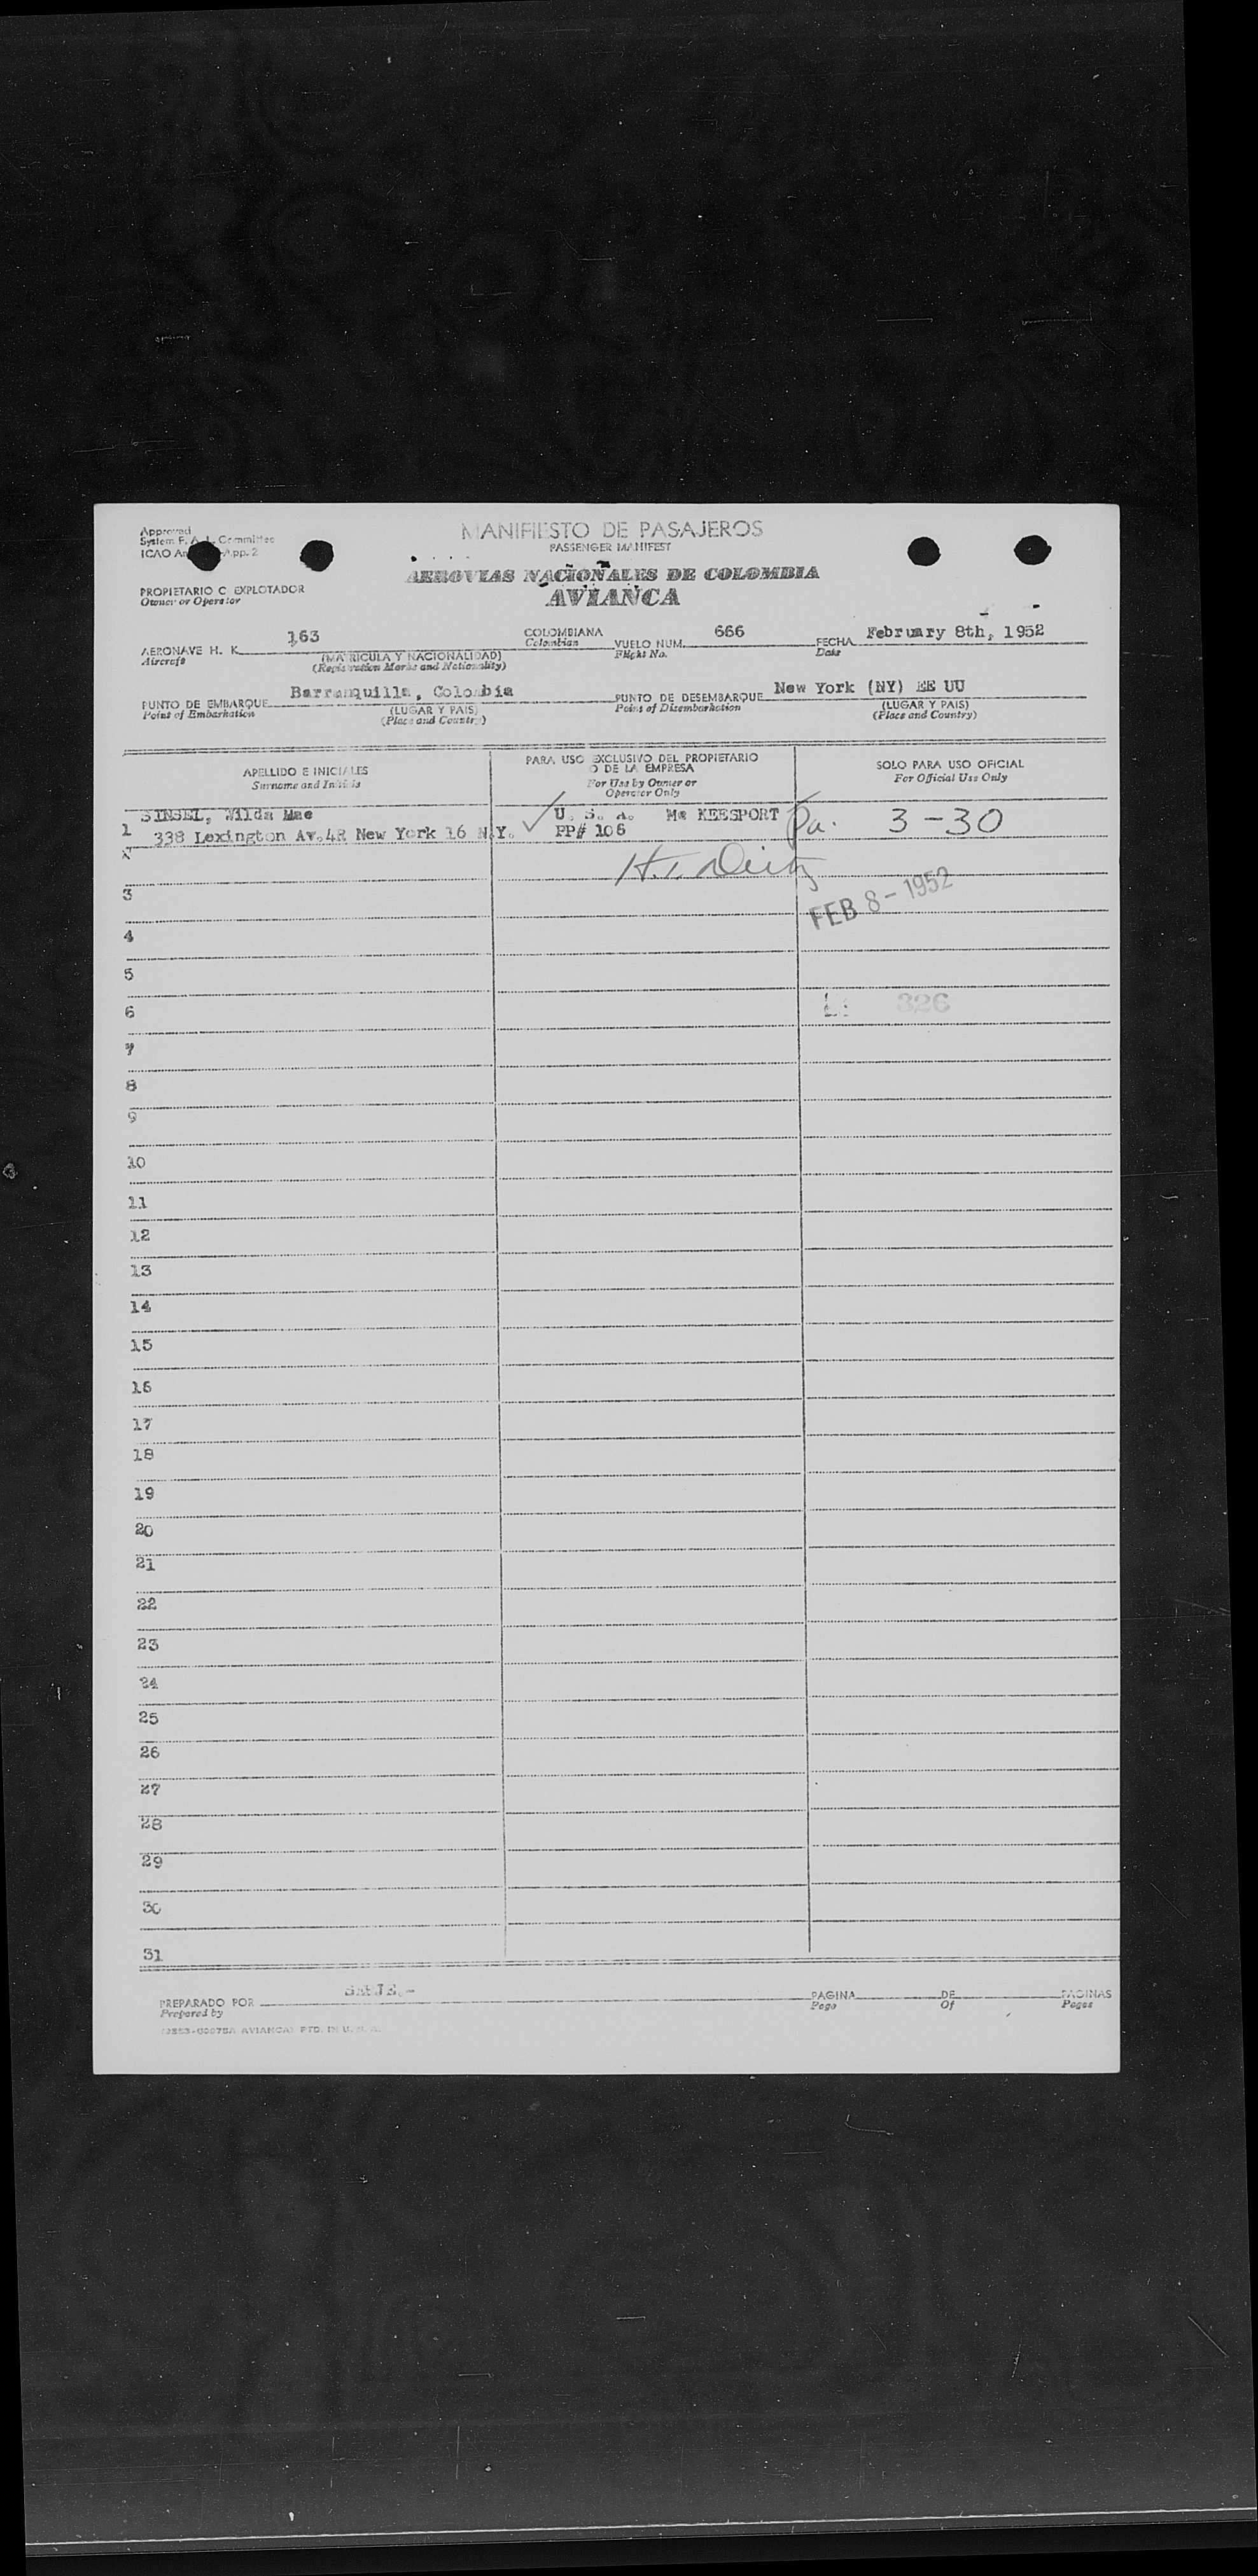 Approved
System F. A. L. Committee
ICAO An App. 2
MANIFIESTO DE PASAJEROS
PASSENGER MANIFEST
AEROVIAS NACIONALES DE COLOMBIA
AVIANCA
PROPIETARIO O EXPLOTADOR
Owner or Operator
AERONAVE H. K. 163 COLOMBIANA VUELO NUM. 666 FECHA February 8th, 1952
Aircraft (MATRICULA Y NACIONALIDAD) Colombian Flight No. Date
(Registration Marks and Nationality)
PUNTO DE EMBARQUE Barranquilla, Colombia PUNTO DE DESEMBARQUE New York (NY) EE UU
Point of Embarkation (LUGAR Y PAIS) Point of Disembarkation (LUGAR Y PAIS)
(Place and Country) (Place and Country)
APELLIDO E INICIALES PARA USO EXCLUSIVO DEL PROPIETARIO O DE LA EMPRESA SOLO PARA USO OFICIAL
Surname and Initials For Use by Owner or Operator Only For Official Use Only
SINSEL, Wilda Mae U. S. A. Mc KEESPORT Pa. 3-30
1 338 Lexington Av.4R New York 16 N.Y. PP# 106
H.T.
3
FEB 8 - 1952
4
5
6 326
7
8
9
10
11
12
13
14
15
16
17
18
19
20
21
22
23
24
25
26
27
28
29
30
31
PREPARADO POR PAGINA DE PAGINAS
Prepared by Page Of Pages
AVIANCA) PTD. IN U. S. A.